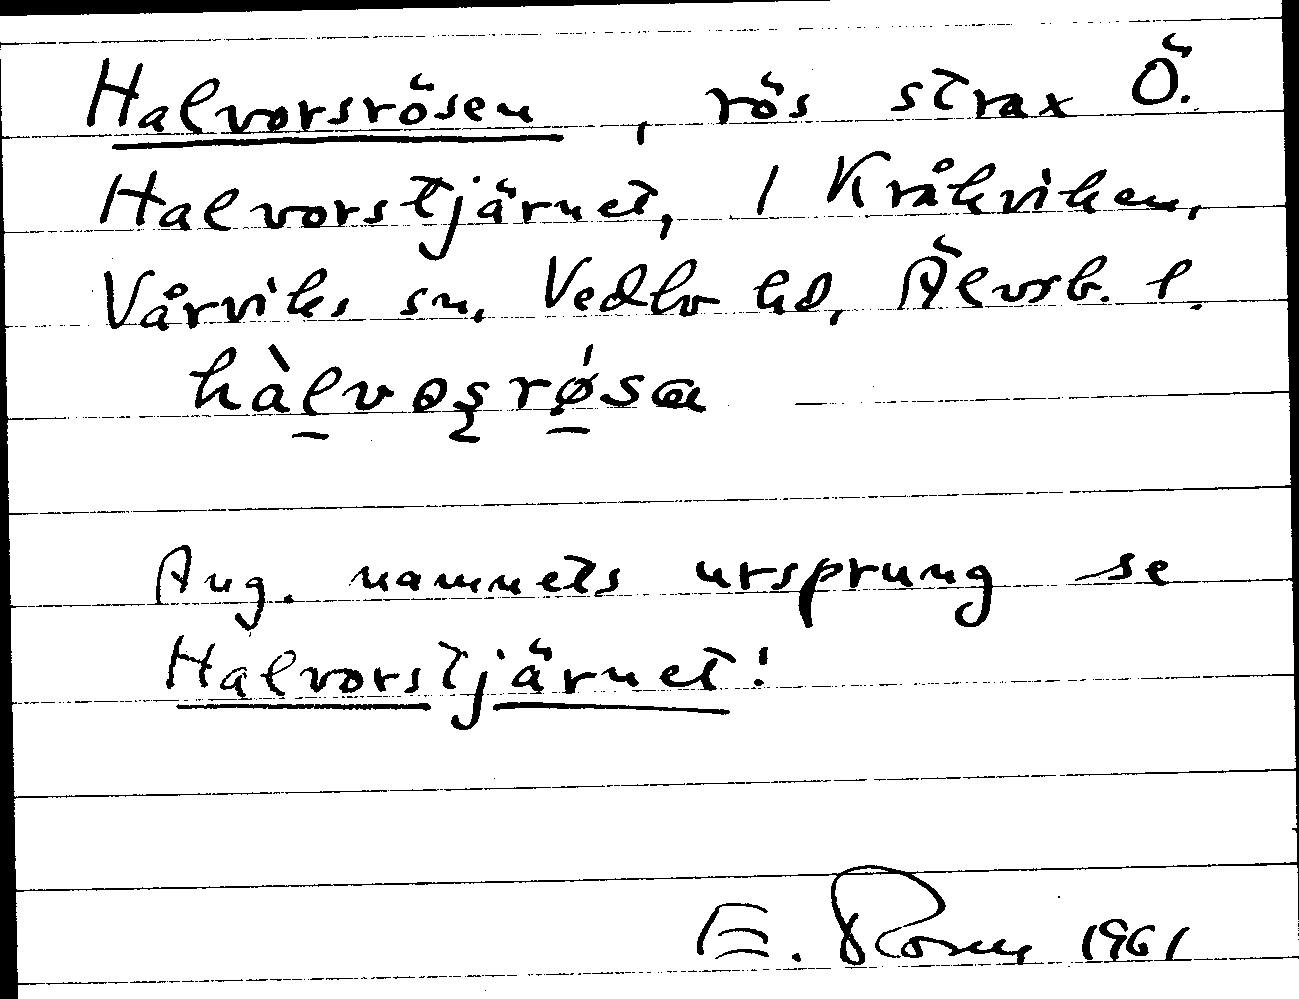 Halvorsrösen, rös strax Ö.
Halvorstjärnet, 1 Kråkviken,
Vårviks sn, Vedbo hd, Älvsb. l.
hàlvos̨rǿsa
Ang. namnets ursprung se
Halvorstjärnet!
E. 1961